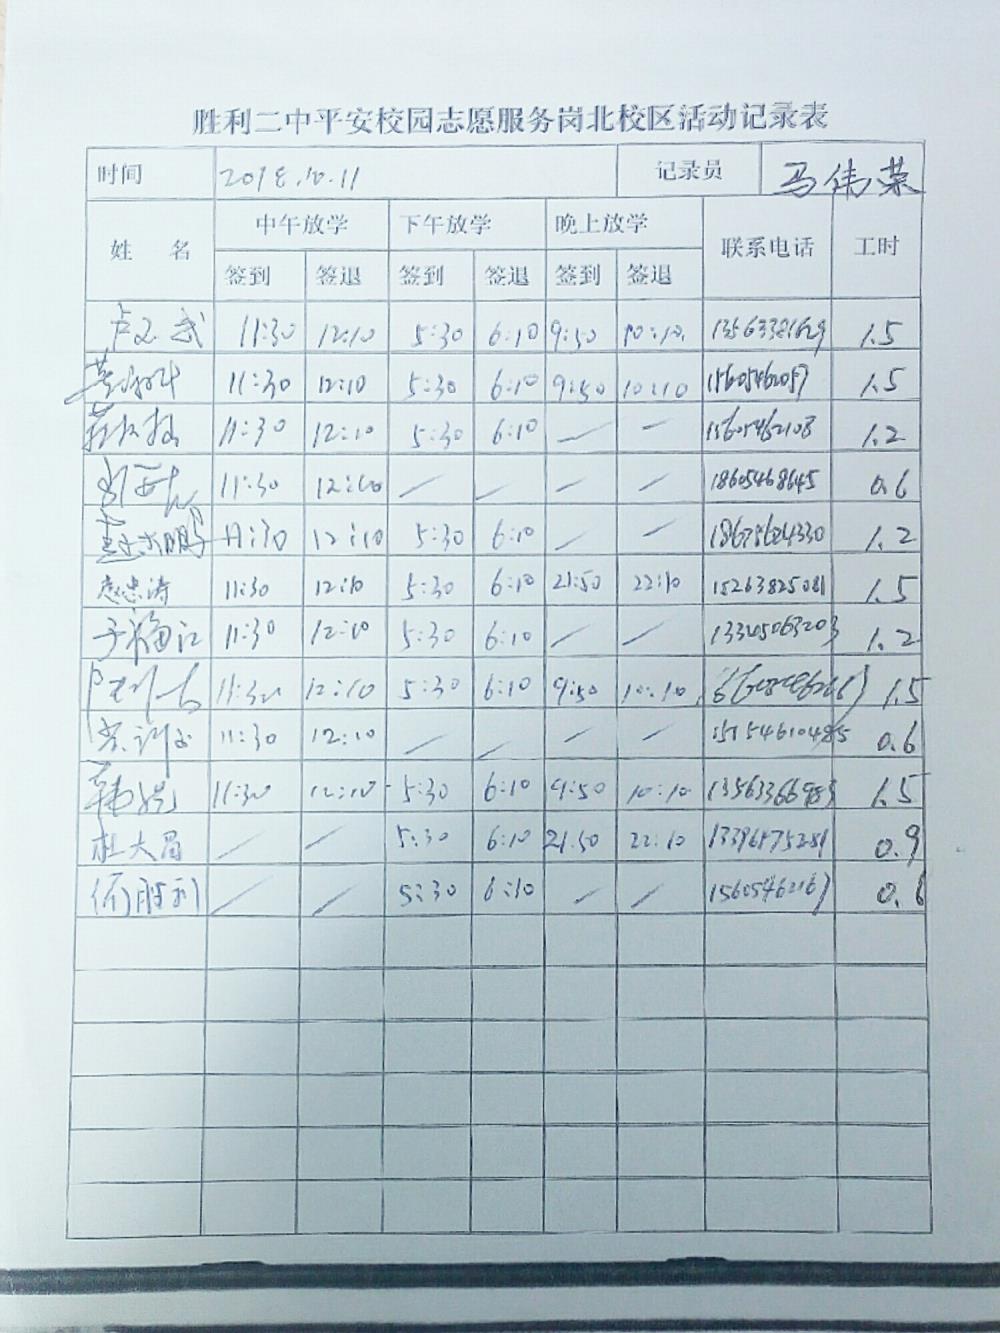 胜利二中平安校园志愿服务岗北校区活动记录表
时间 2018.10.11 记录员 马伟荣
姓 名 中午放学 下午放学 晚上放学 联系电话 工时
签到 签退 签到 签退 签到 签退
11:30 12:10 5:30 6:10 9:50 10:10 1.5
11:30 12:10 5:30 6:10 9:50 10:10 15605462057 1.5
11:30 12:10 5:30 6:10 — — 15605462108 1.2
11:30 12:10 — — — — 18605468645 0.6
11:30 12:10 5:30 6:10 — — 1.2
赵忠涛 11:30 12:10 5:30 6:10 21:50 22:10 15263825081 1.5
于福江 11:30 12:10 5:30 6:10 — — 13345063203 1.2
11:30 12:10 5:30 6:10 9:50 10:10 1.5
11:30 12:10 — — — — 15154610485 0.6
11:30 12:10 5:30 6:10 9:50 10:10 13563366983 1.5
杜大眉 — — 5:30 6:10 21:50 22:10 0.9
胜利 — — 5:30 6:10 — — 15605462167 0.6